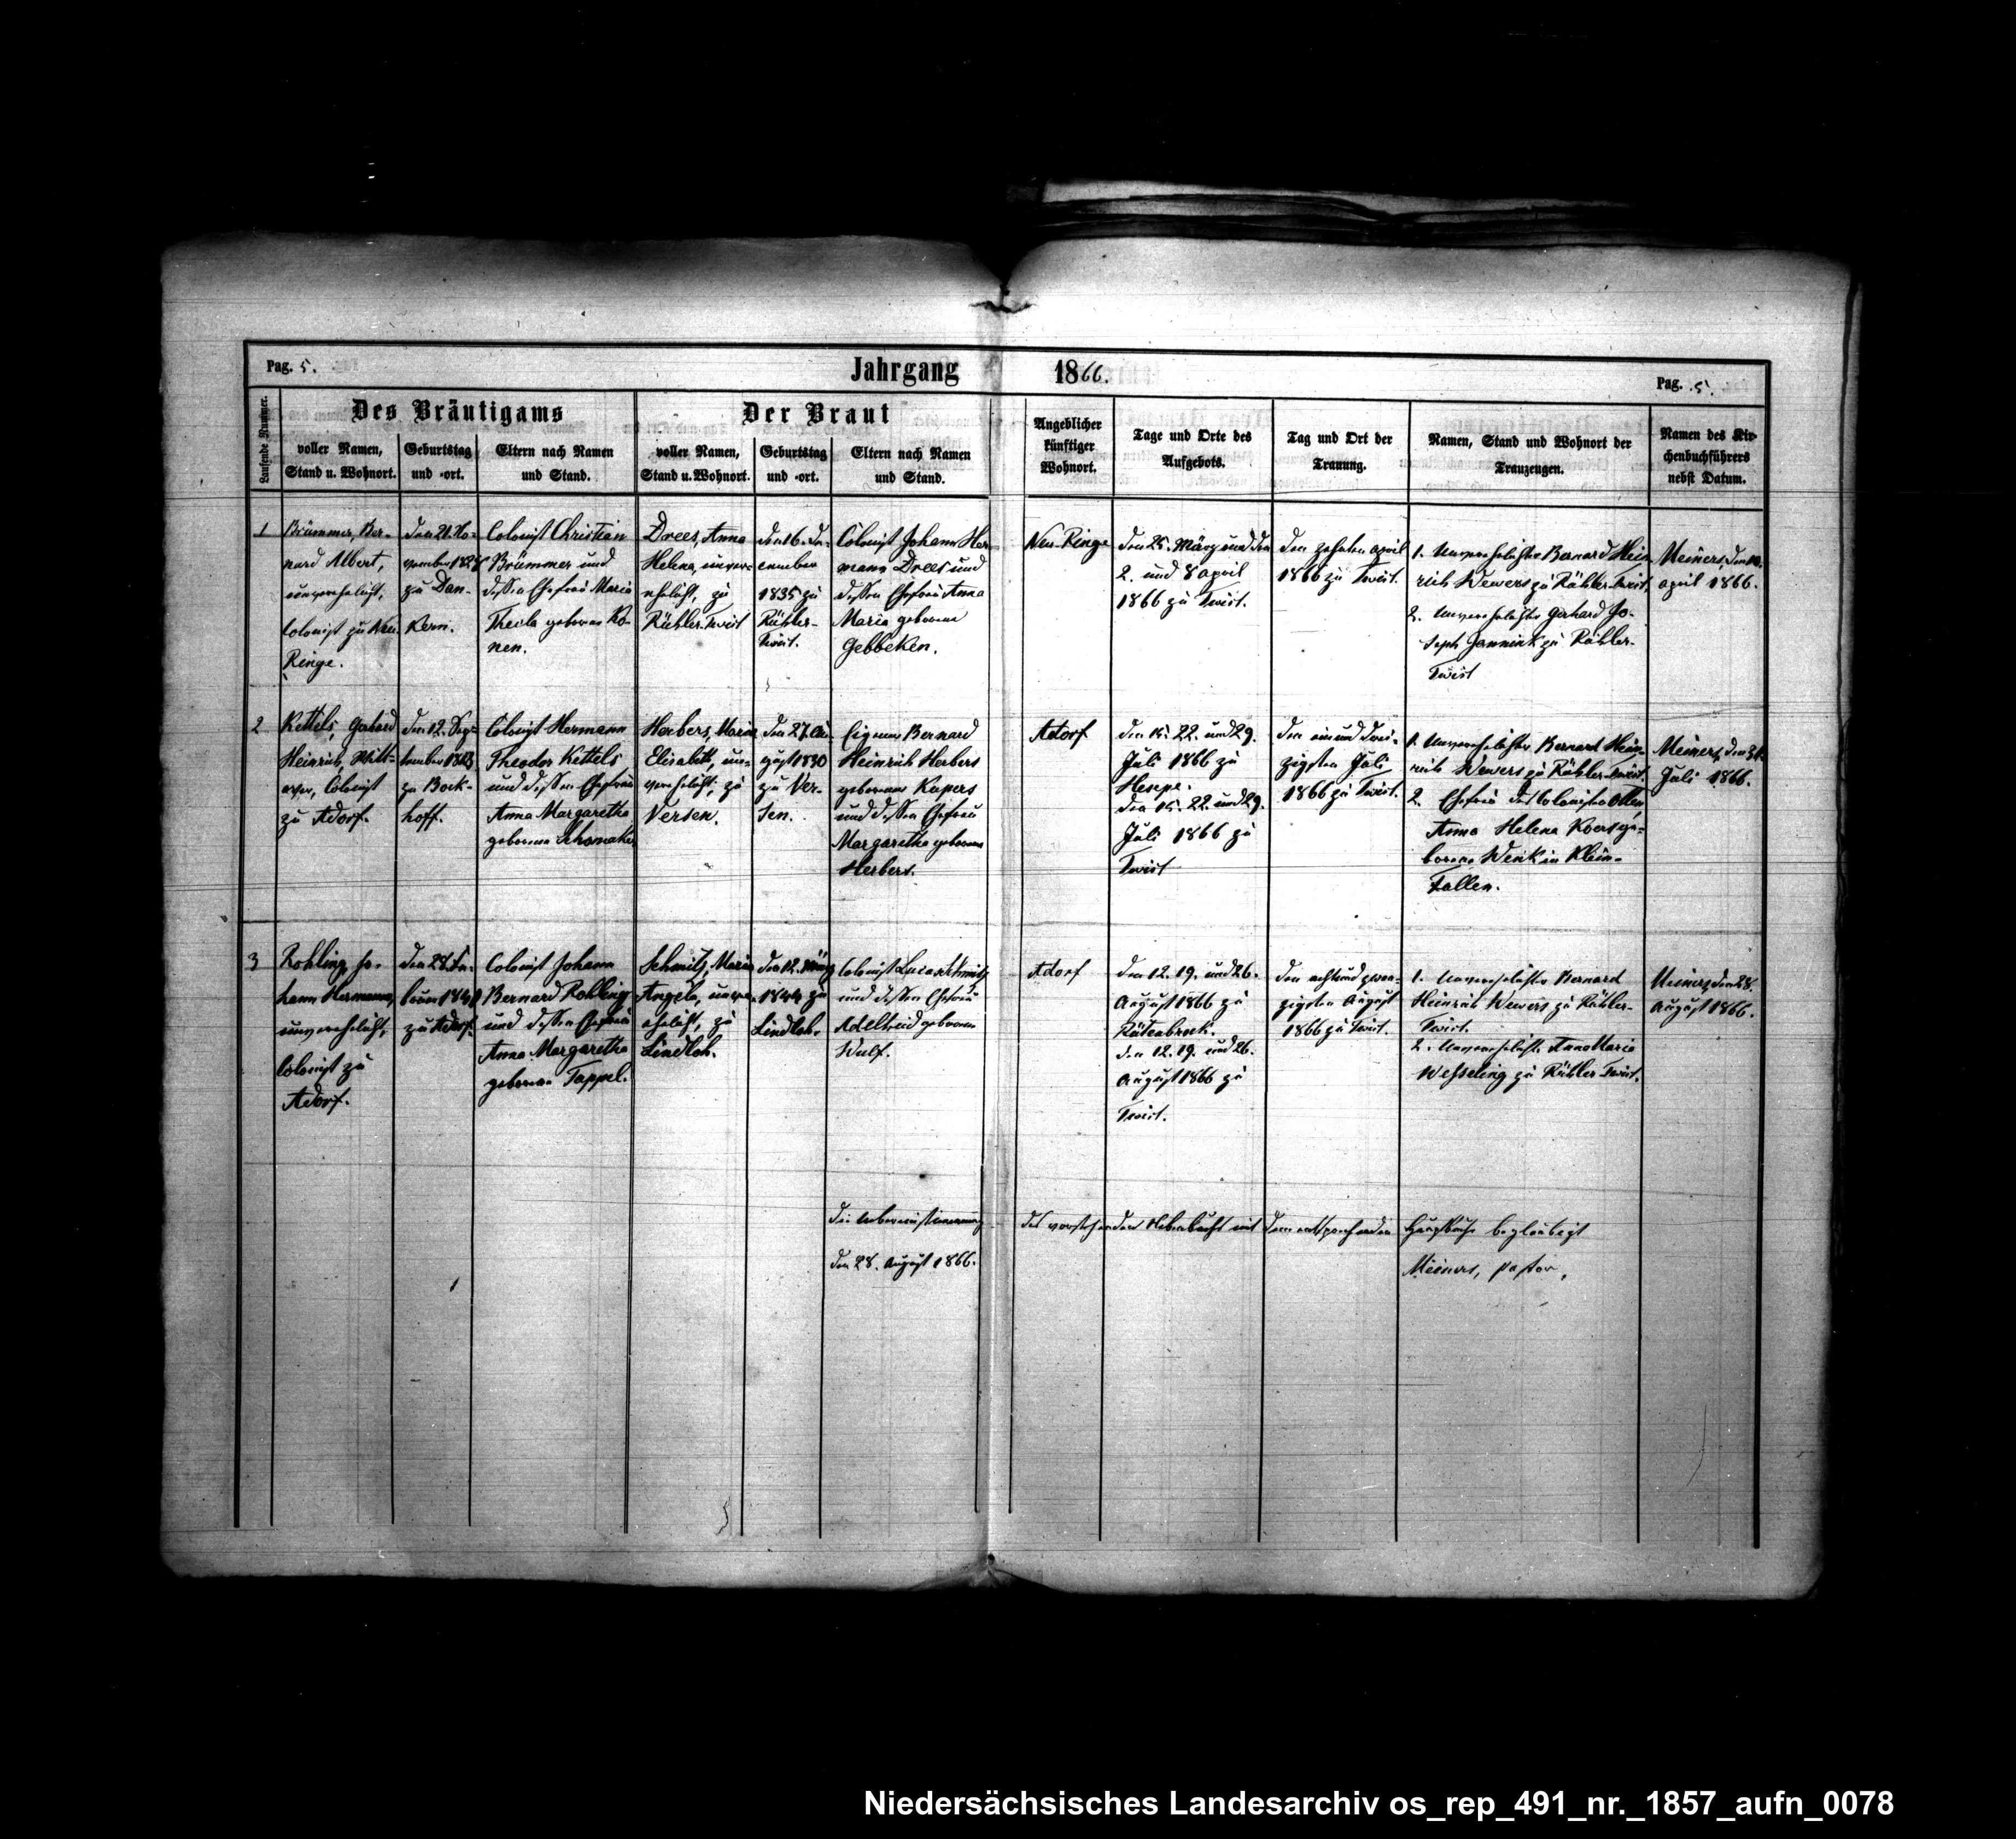 Pag. 5.
Jahrgang 1866.
Pag. 5.
Laufende Nummer.
Des Bräutigams
voller Namen,
Stand u. Wohnort.
Geburtstag
und -ort.
Eltern nach Namen
und Stand.
Der Braut
voller Namen,
Stand u. Wohnort.
Geburtstag
und -ort.
Eltern nach Namen
und Stand.
Angeblicher
künftiger
Wohnort.
Tage und Orte des
Aufgebots.
Tag und Ort der
Trauung.
Namen, Stand und Wohnort der
Trauzeugen.
Namen des Kir-
chenbuchführers
nebst Datum.
1
Brümmer, Ber-
nard Albert,
unverehelicht,
Colonist zu Neu
Ringe.
den 21. No-
vember
zu Dan-
kern.
Colonist Christian
Brümmer und
dessen Ehefrau Maria
Thecla geborene Ko-
nen.
Drees, Anna
Helena, unver-
ehelicht, zu
Rühler-Twist
den 16. De-
cember
1835 zu
Rühler-
Twist.
Colonist Johann Her-
mann Drees und
dessen Ehefrau Anna
Maria geborene
Gebbeken.
Neu-Ringe
den 25. März und den
2. und 8 april
1866 zu Twist.
den zehnten april
1866 zu Twist.
1. Unverehelichter Bernard Hein
rich Wewers zu Rühler-Twist,
2. Unverehelichter Gerhard Jo-
seph Jannink zu Rühler-
Twist
Meiners, den 10.
april 1866.
2
Kettels, Gerhard
Heinrich, Witt-
wer, Colonist
zu Adorf.
den 12. Sep-
tember
zu Bock-
hoff.
Colonist Hermann
Theodor Kettels
und dessen Ehefrau
Anna Margaretha
geborene Schomaker
Herbers, Maria
Elisabeth, un-
verehelicht, zu
Versen.
den 27. Au-
gust 1830
zu Ver-
sen.
Eigener Bernard
Heinrich Herbers
geborener Kupers
und dessen Ehefrau
Margaretha geborene
Herbers.
Adorf
den 15. 22. und 29.
Juli 1866 zu
Hesepe.
den 15. 22. und 29.
Juli 1866 zu
Twist
den ein und drei-
zigsten Juli
1866 zu Twist.
1. Unverehelichter Bernard Hein-
rich Wewers zu Rühler-Twist.
2. Ehefrau des Colonisten
Anna Helena Koers ge-
borene Wenk in Klein-
Fullen.
Meiners, den 31.
Juli 1866.
3
Rohling, Jo-
hann Hermann,
unverehelicht,
Colonist zu
Adorf.
den 28. Fe-
bruar
zu Adorf.
Colonist Johann
Bernard Rohling
und dessen Ehefrau
Anna Margaretha
geborene Tappel.
Schmitz, Maria
Angela, unver-
ehelicht, zu
Lindloh.
den 12. März
1844 zu
Lindloh.
Colonist Lucas Schmitz
und dessen Ehefrau
Adelheid geborene
Wulf.
Adorf
den 12. 19. und 26.
August 1866 zu
Rütenbrock.
den 12. 19. und 26.
August 1866 zu
Twist.
den achtundzwan-
zigsten August
1866 zu Twist.
1. Unverehelichter Bernard
Heinrich Wewers zu Rühler-
Twist.
2. Unverehelichte Anna Maria
Wesseling zu Rühler-Twist.
Meiners, den 28.
August 1866.
die Uebereinstimmung des vorstehenden Nebenbuchs mit dem entsprechenden Hauptbuche beglaubigt
den 28. August 1866.
Meiners, Pastor,
Niedersächsisches Landesarchiv os_rep_491_nr._1857_aufn_0078